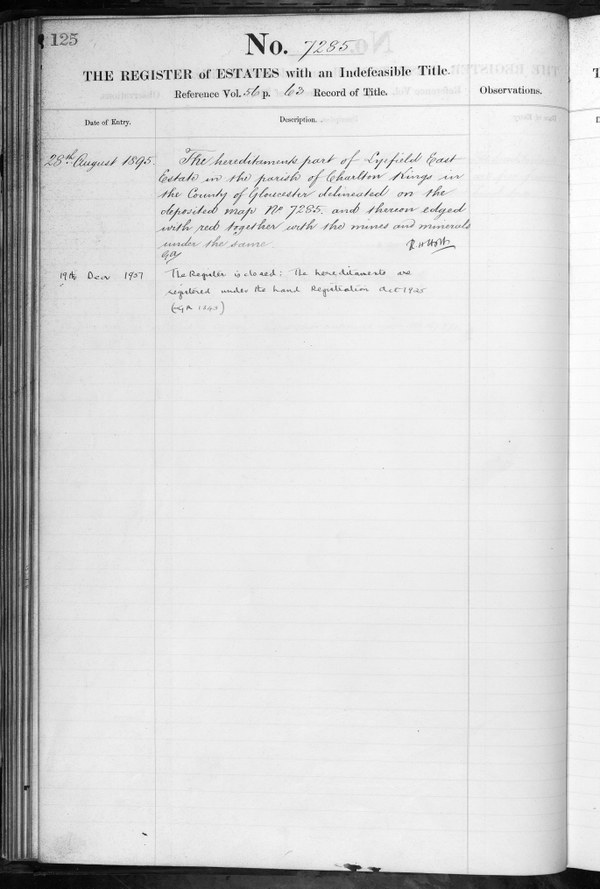 125
No. 7285
THE REGISTER of ESTATES with an Indefeasible Title.
Reference Vol. 56 p. 63 Record of Title.
Observations.
Date of Entry.
Description.
28th August 1895
The hereditaments part of Lyefield East
Estate in the parish of Charlton Kings in
the County of Gloucester delineated on the
deposited map No 7285 and thereon edged
with red together with the mines and minerals
under the same.
19th Decr 1957
The Register is closed: The hereditaments are
registered under the Land Registration Act 1925